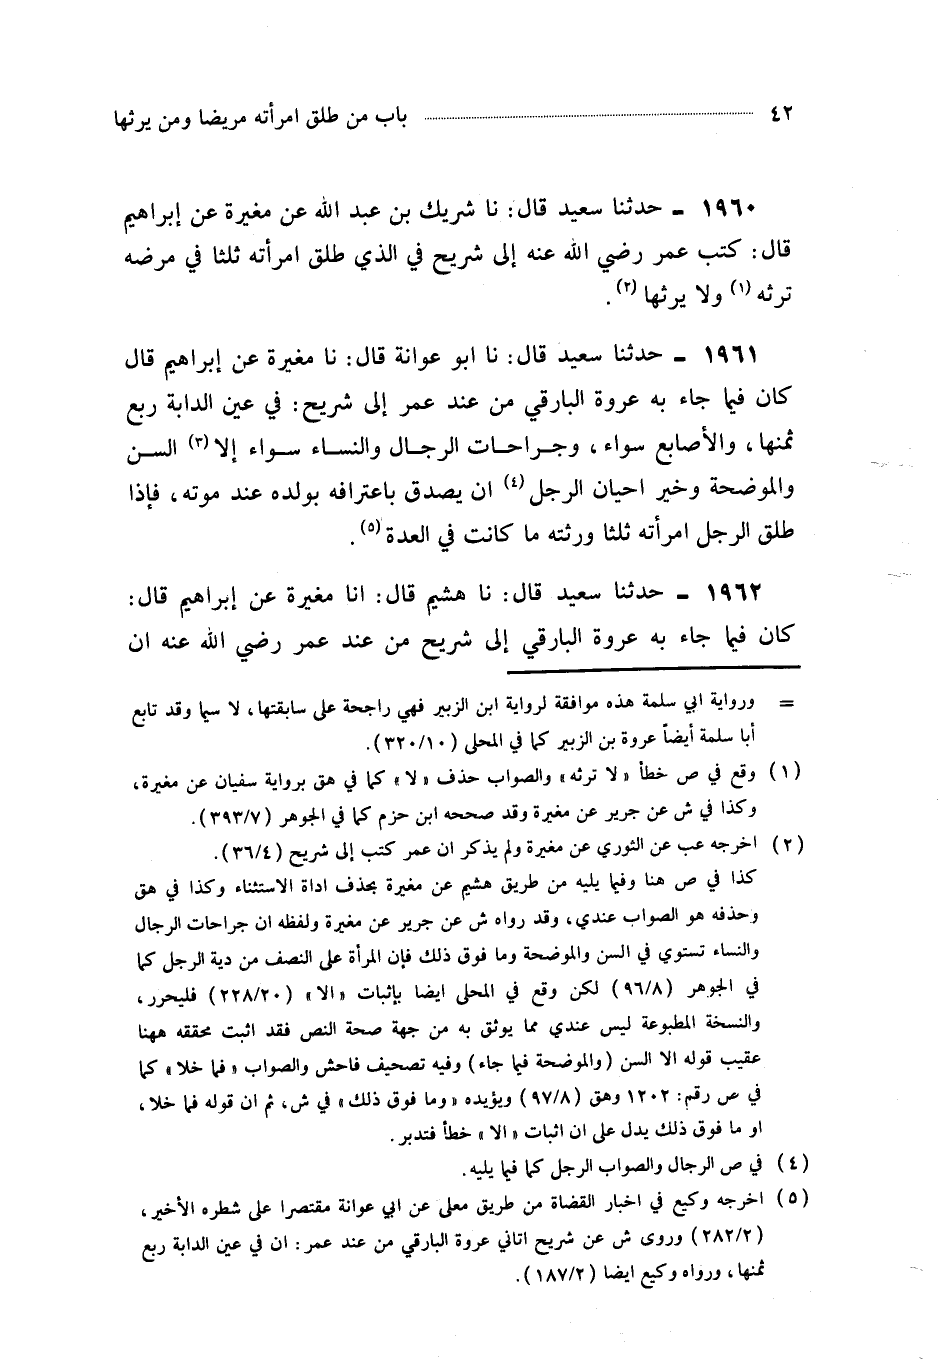 ٤٢ ........ باب من طلق امرأته مريضا ومن يرثها
١٩٦٠ ـ حدثنا سعيد قال: نا شريك بن عبد الله عن مغيرة عن إبراهيم
قال: كتب عمر رضي الله عنه إلى شريح في الذي طلق امرأته ثلثا في مرضه
ترثه (١) ولا يرثها (٢).
١٩٦١ ـ حدثنا سعيد قال: نا ابو عوانة قال: نا مغيرة عن إبراهيم قال
كان فيما جاء به عروة البارقي من عند عمر إلى شريح: في عين الدابة ربع
ثمنها، والأصابع سواء، وجراحات الرجال والنساء سواء إلا (٣) السن
والموضحة وخير احيان الرجل (٤) ان يصدق باعترافه بولده عند موته، فإذا
طلق الرجل امرأته ثلثا ورثته ما كانت في العدة (٥).
١٩٦٢ ـ حدثنا سعيد قال: نا هشيم قال: انا مغيرة عن إبراهيم قال:
كان فيما جاء به عروة البارقي إلى شريح من عند عمر رضي الله عنه ان
= ورواية ابي سلمة هذه موافقة لرواية ابن الزبير فهي راجحة على سابقتها، لا سيما وقد تابع
أبا سلمة أيضاً عروة بن الزبير كما في المحلى (٣٢٠/١٠).
(١) وقع في ص خطأ « لا ترثه» والصواب حذف « لا » كما في هق برواية سفيان عن مغيرة،
وكذا في ش عن جرير عن مغيرة وقد صححه ابن حزم كما في الجوهر (٣٩٣/٧).
(٢) اخرجه عب عن الثوري عن مغيرة ولم يذكر ان عمر كتب إلى شريح (٣٦/٤).
كذا في ص هنا وفيما يليه من طريق هشيم عن مغيرة بحذف اداة الاستثناء وكذا في هق
وحذفه هو الصواب عندي، وقد رواه ش عن جرير عن مغيرة ولفظه ان جراحات الرجال
والنساء تستوي في السن والموضحة وما فوق ذلك فإن المرأة على النصف من دية الرجل كما
في الجوهر (٩٦/٨) لكن وقع في المحلى ايضا بإثبات «الا» (٢٢٨/٢٠) فليحرر،
والنسخة المطبوعة ليس عندي مما يوثق به من جهة صحة النص فقد اثبت محققه ههنا
عقيب قوله الا السن (والموضحة فيما جاء) وفيه تصحيف فاحش والصواب « فما خلا » كما
في ص رقم: ١٢٠٢ وهق (٩٧/٨) ويؤيده «وما فوق ذلك» في ش، ثم ان قوله فما خلا،
او ما فوق ذلك يدل على ان اثبات « الا » خطأ فتدبر.
(٤) في ص الرجال والصواب الرجل كما فيما يليه.
(٥) اخرجه وكيع في اخبار القضاة من طريق معلى عن ابي عوانة مقتصرا على شطره الأخير،
(٢٨٢/٢) وروى ش عن شريح اتاني عروة البارقي من عند عمر: ان في عين الدابة ربع
ثمنها، ورواه وكيع ايضا (١٨٧/٢).